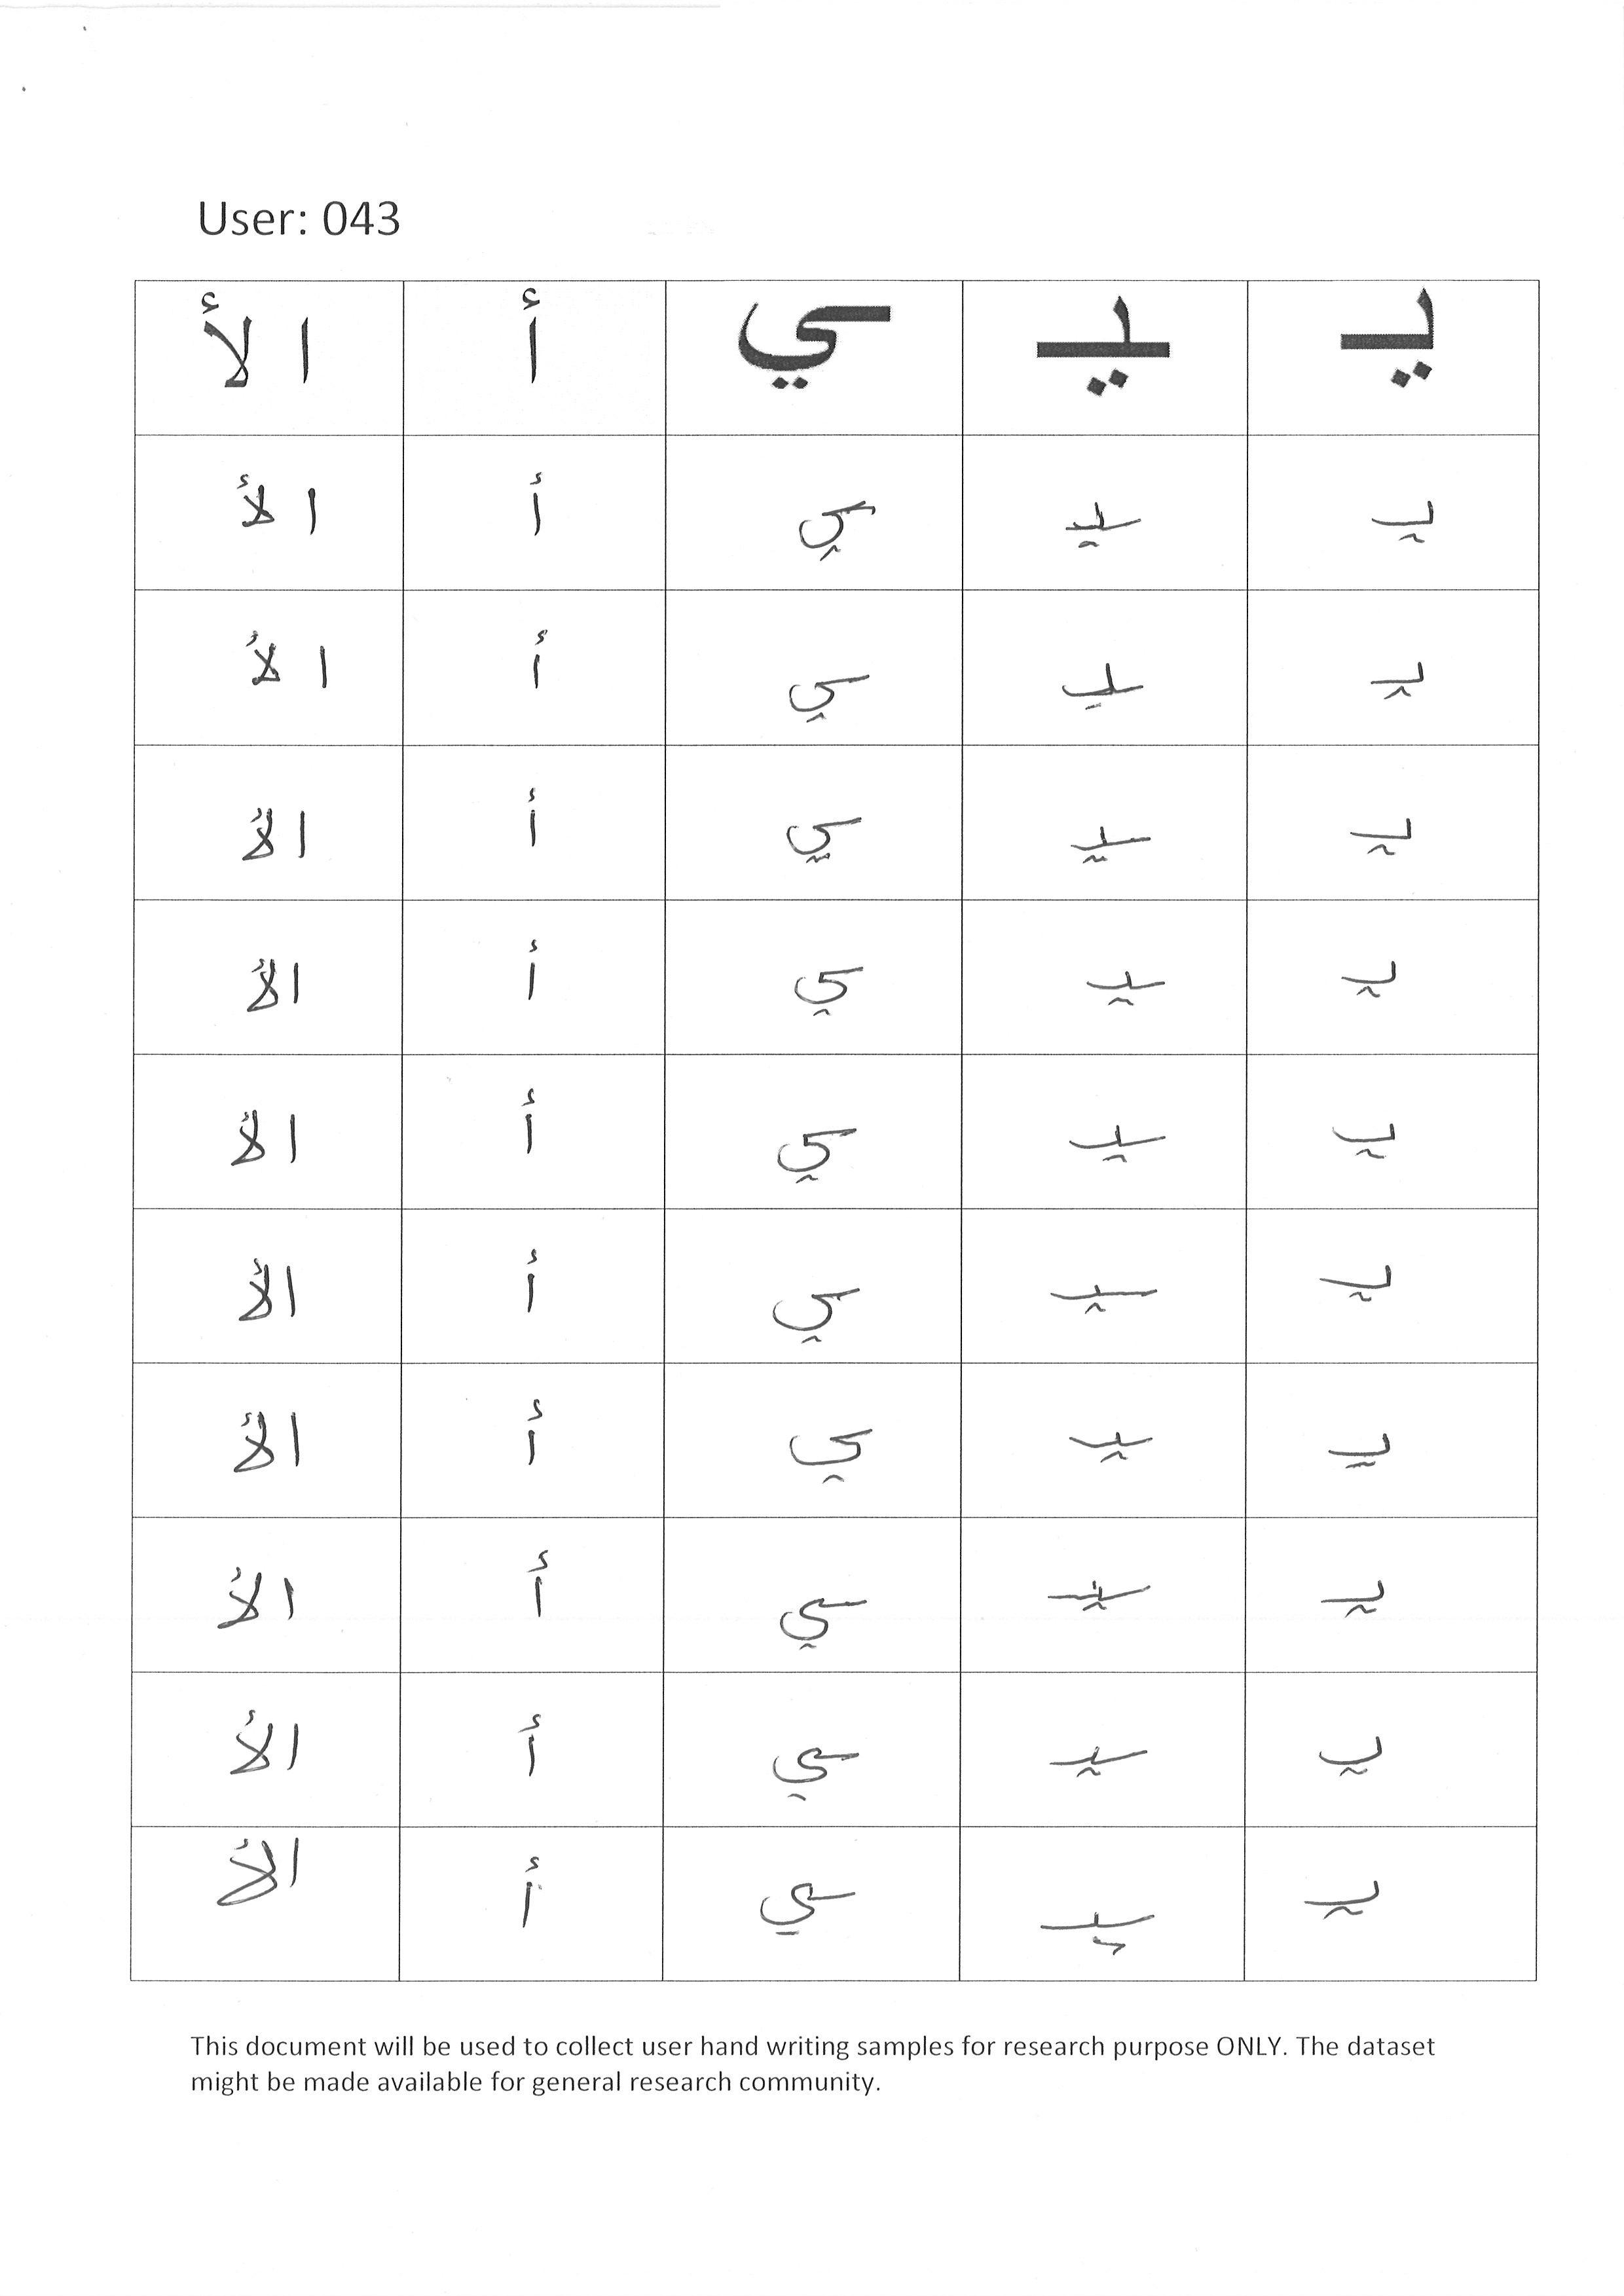 User: 043
يـ ـيـ ـي أ الأ
يـ ـيـ ـي أ الأ
يـ ـيـ ـي أ الأ
يـ ـيـ ـي أ الأ
يـ ـيـ ـي أ الأ
يـ ـيـ ـي أ الأ
يـ ـيـ ـي أ الأ
يـ ـيـ ـي أ الأ
يـ ـيـ ـي أ الأ
يـ ـيـ ـي أ الأ
يـ ـيـ ـي أ الأ
This document will be used to collect user hand writing samples for research purpose ONLY. The dataset
might be made available for general research community.